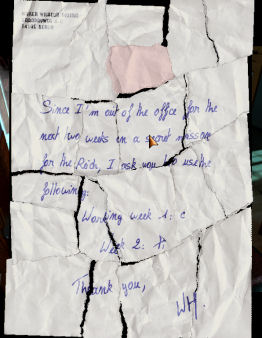 Since I'm out of the office for the
next two weeks on a secret mission
for the Reich, I ask you to use the
following:
Working week 1: c
Week 2:
Thank you,
WH.